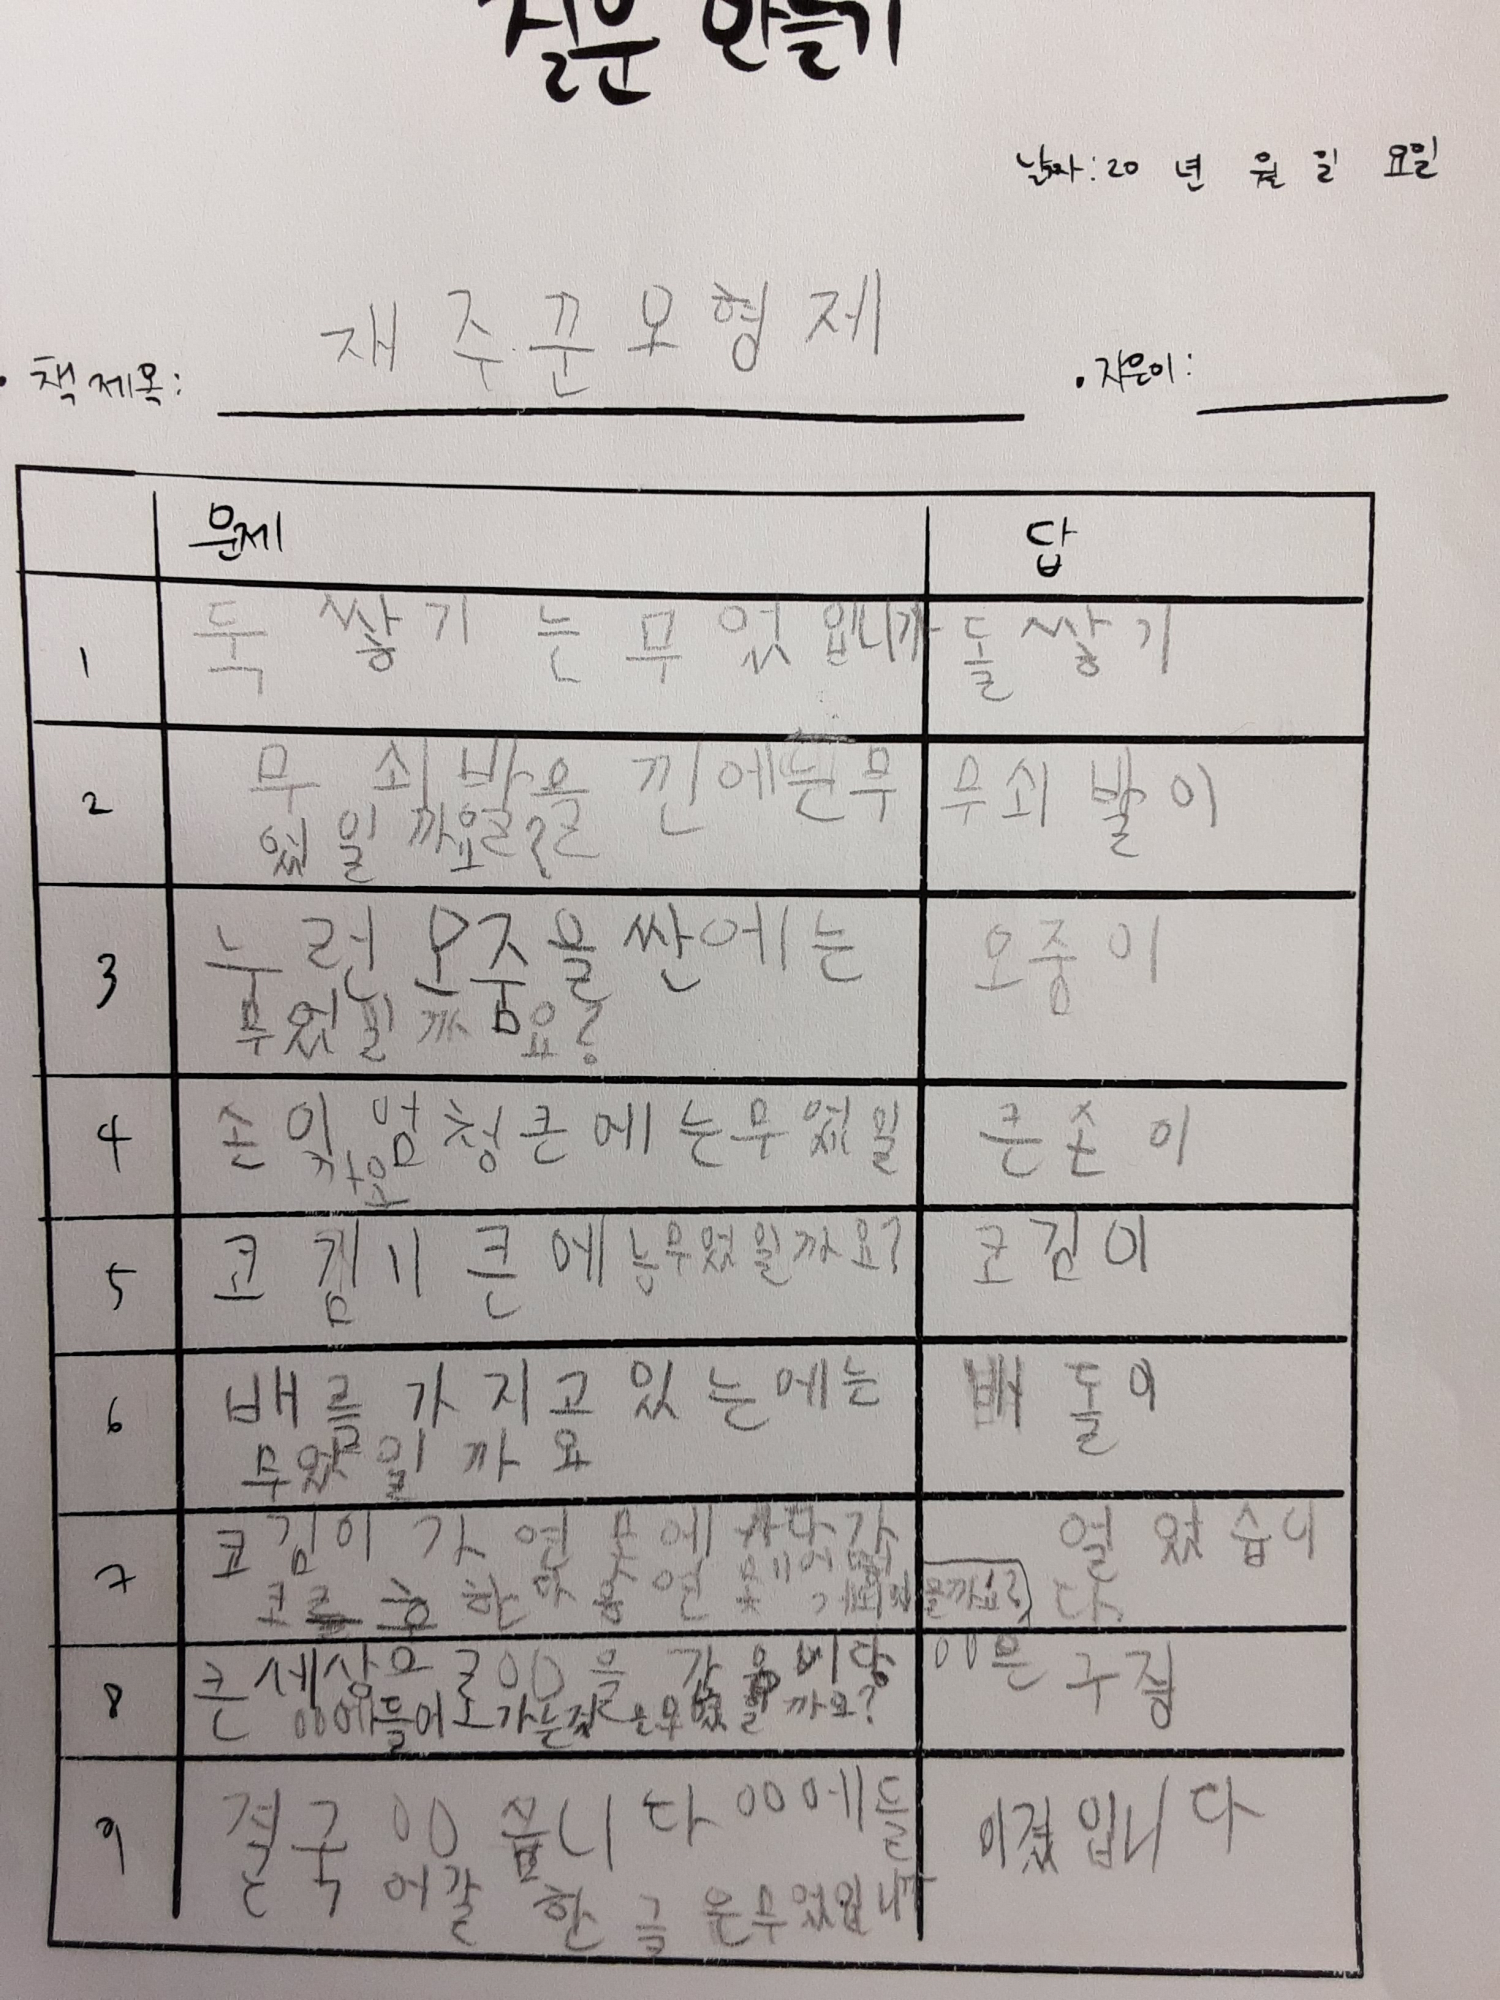 질문 만들기
날짜: 20 년 월 일 요일
• 책 제목: 재주꾼오형제
• 지은이:
문제 답
1 둑 쌓기 는 무 엇 입니까 돌 쌓 기
2 무 쇠 발을 낀 에 는 무 무 쇠 발 이
일 까요?
3 누 런 오줌을 싼에는 오중이
무엇일 까요?
4 손 이 엄 청 큰 에 는 무 일 큰 손 이
까요
5 코 김 ㅣㅣ 큰 에 능무 일까요? 코 김 이
6 배 를 가 지 고 있 는 에 는 배 돌 이
무었일 까 요
7 코 김 이 가 연 못 에 얼 었 습 니
코를 흥 한 연 못 을까요? 다
8 큰 세상으로 00을 00은 구정
00에들어 가는것은무었일까요?
9 결국 00 습니다 00에들 이겼입니다
어갈 한 글 은무었입니까